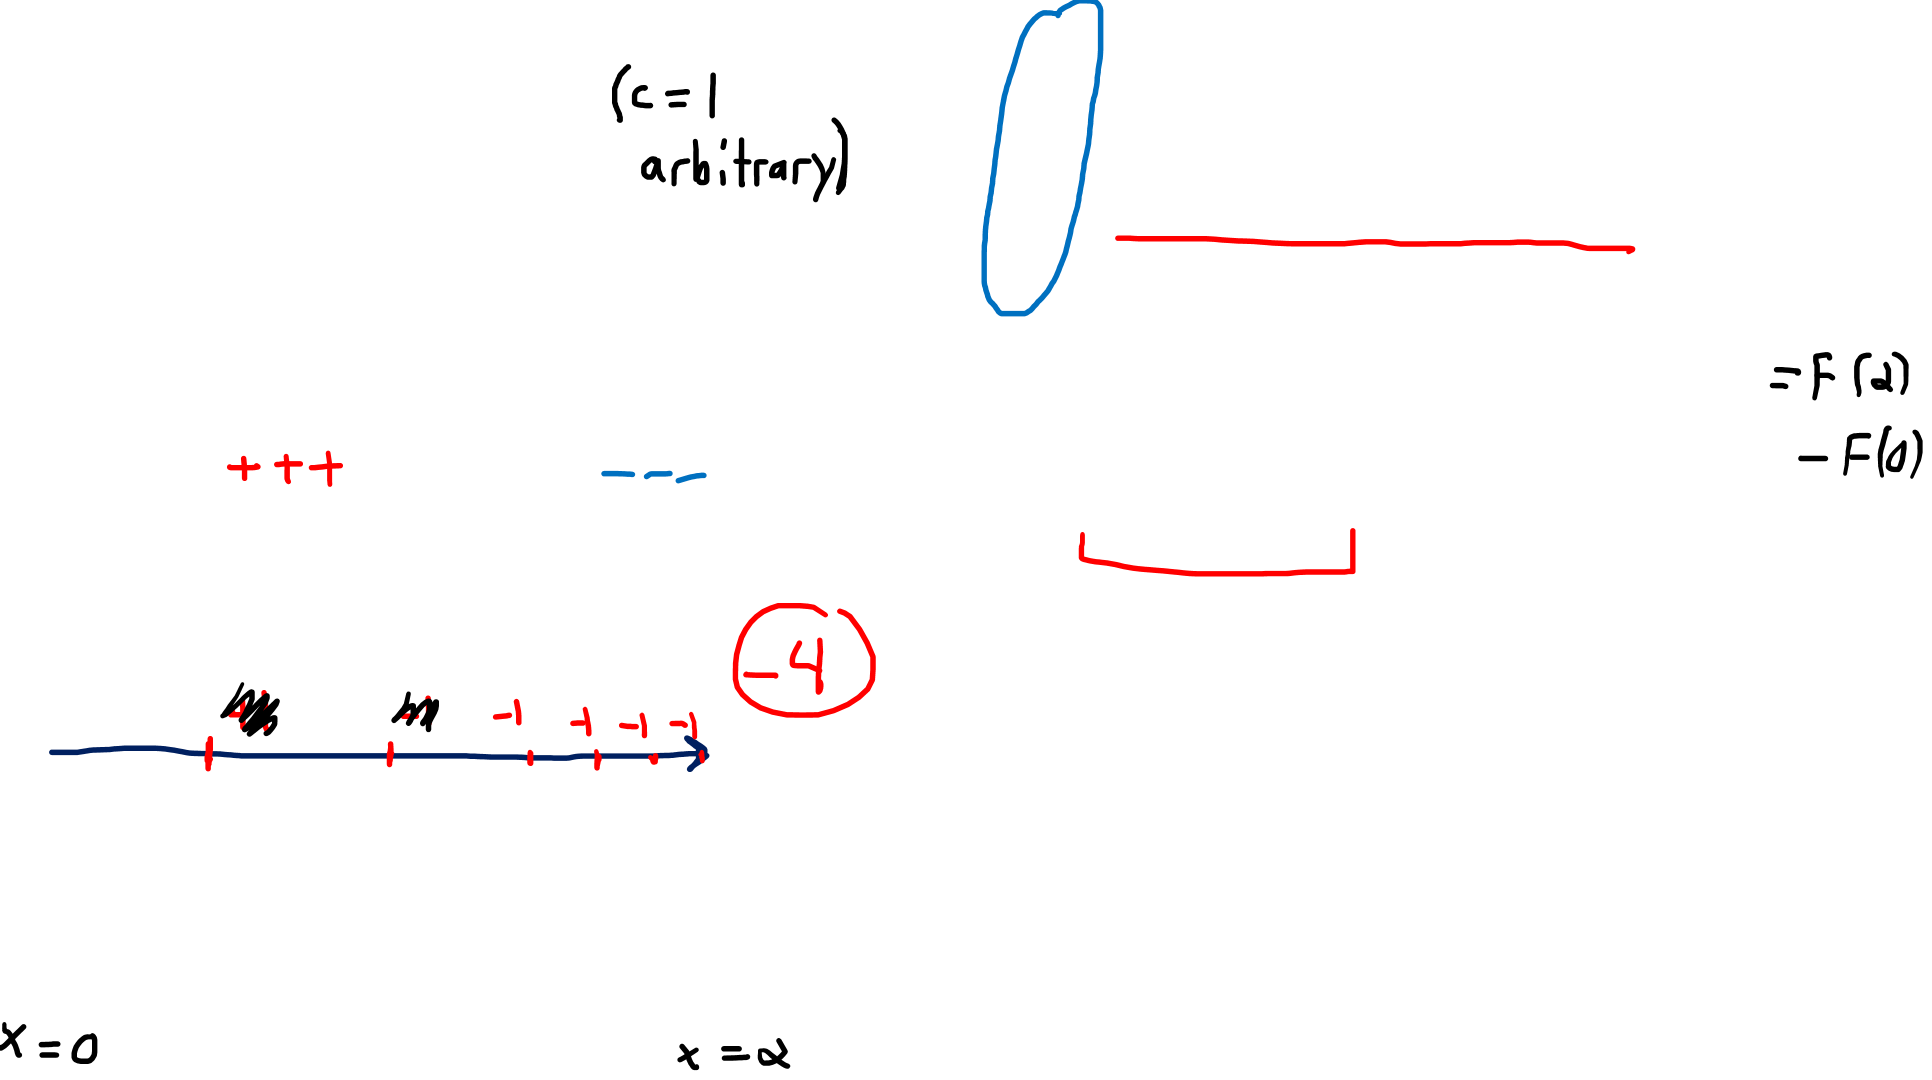 (c = 1
arbitrary)
= F(2)
- F(0)
+ + +
- - -
-4
-1 -1 -1 -1
x = 0
x = 2